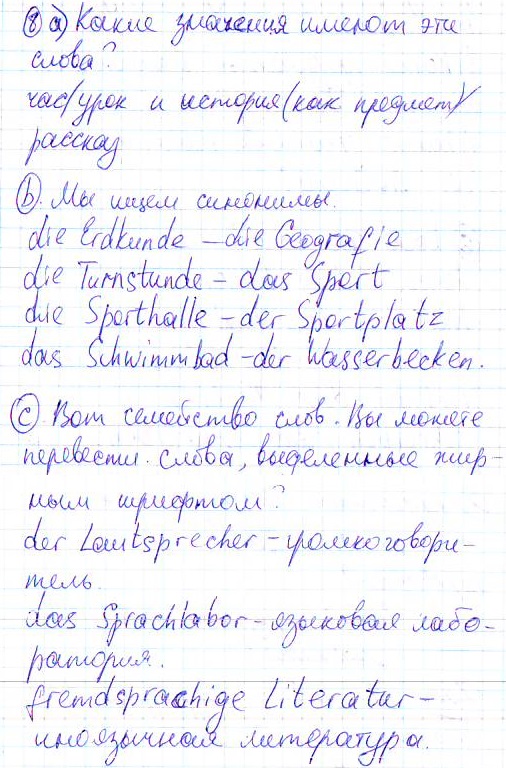 ⑧ a) Какие значения имеют эти
слова?
час/урок и история (как предмет)/
рассказ
ⓑ. Мы ищем синонимы.
die Erdkunde – die Geografie
die Turnstunde – das Sport
die Sporthalle – der Sportplatz
das Schwimmbad – der Wasserbecken.
ⓒ. Вот семейство слов. Вы можете
перевести слова, выделенные жир-
ным шрифтом?
der Lautsprecher – громкоговори-
тель.
das Sprachlabor – языковая лабо-
ратория.
fremdsprachige Literatur –
иноязычная литература.